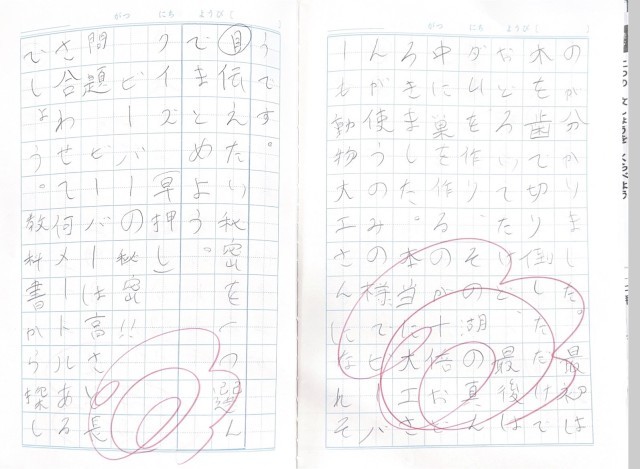 がつ にち ようび
のか分かりました。最初は
木を歯で切り倒しただけで
おどろいてたけど、最後は
ダムを作り、その湖の真ん
中に巣を作るのが十倍おど
ろきました。本当に大工さ
んが使うのみの様でビバ
ーも動物大工さんになれそ
がつ にち ようび
うです。
自伝えたい秘密を 選ん
でまとめよう。
クイズ(早押し)
ビーバーの秘密!!
問題ビーバーは高さと長
さ合わせて何メートルある
でしょう。教科書から探し